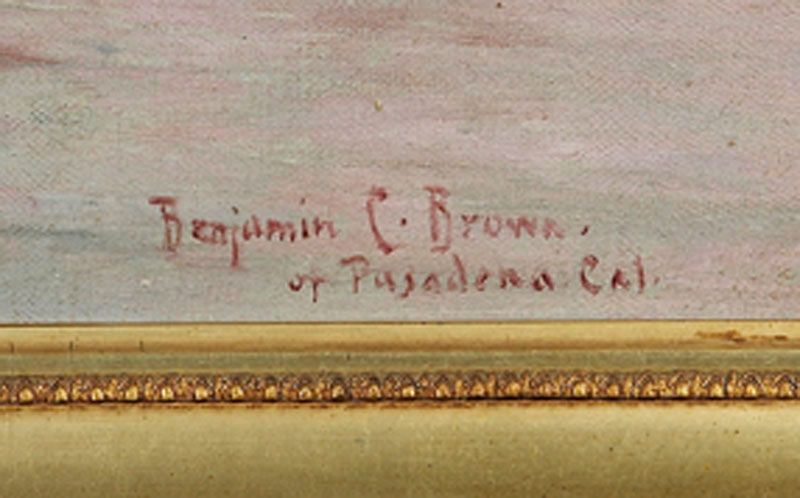 Benjamin C. Brown.
of Pasadena Cal.